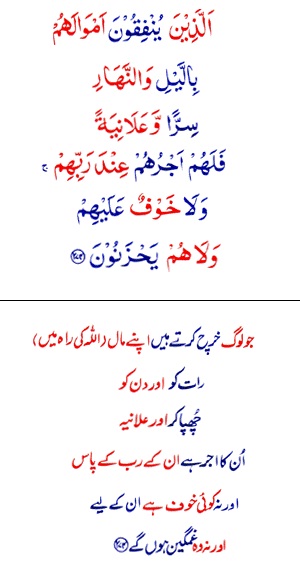 اَلَّذِيْنَ يُنْفِقُوْنَ اَمْوَالَهُمْ
بِالَّيْلِ وَالنَّهَارِ
سِرًّا وَّعَلَانِيَةً
فَلَهُمْ اَجْرُهُمْ عِنْدَ رَبِّهِمْ ۚ
وَلَا خَوْفٌ عَلَيْهِمْ
وَلَا هُمْ يَحْزَنُوْنَ ﴿۲۷۴﴾
جو لوگ خرچ کرتے ہیں اپنے مال (اللہ کی راہ میں)
رات کو اور دن کو
چُھپا کر اور علانیہ
اُن کا اجر ہے ان کے رب کے پاس
اور نہ کوئی خوف ہے ان کے لیے
اور نہ وہ غمگین ہوں گے ﴿۲۷۴﴾